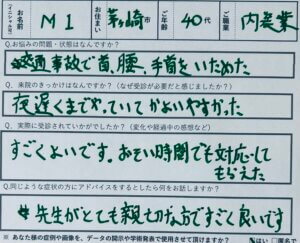 お名前 (イニシャル可) M I お住まい 茅ヶ崎市 ご年齢 40代 ご職業 内装業
Q.お悩みの問題・状態はなんですか?
交通事故で首、腰、手首をいためた
Q. 来院のきっかけはなんですか?(なぜ受診が必要だと感じましたか?)
夜遅くまでやっていてかよいやすかった
Q. 実際に受診されていかがでしたか?(変化や経過中の感想など)
すごくよいです。おそい時間でも対応して
もらえた
Q.同じような症状の方にアドバイスをするとしたら何をお話しますか?
先生がとても親切な点ですごく良いです
※ あなた様の症例や画像を、データの開示や学術発表で使用させて頂けますか? はい